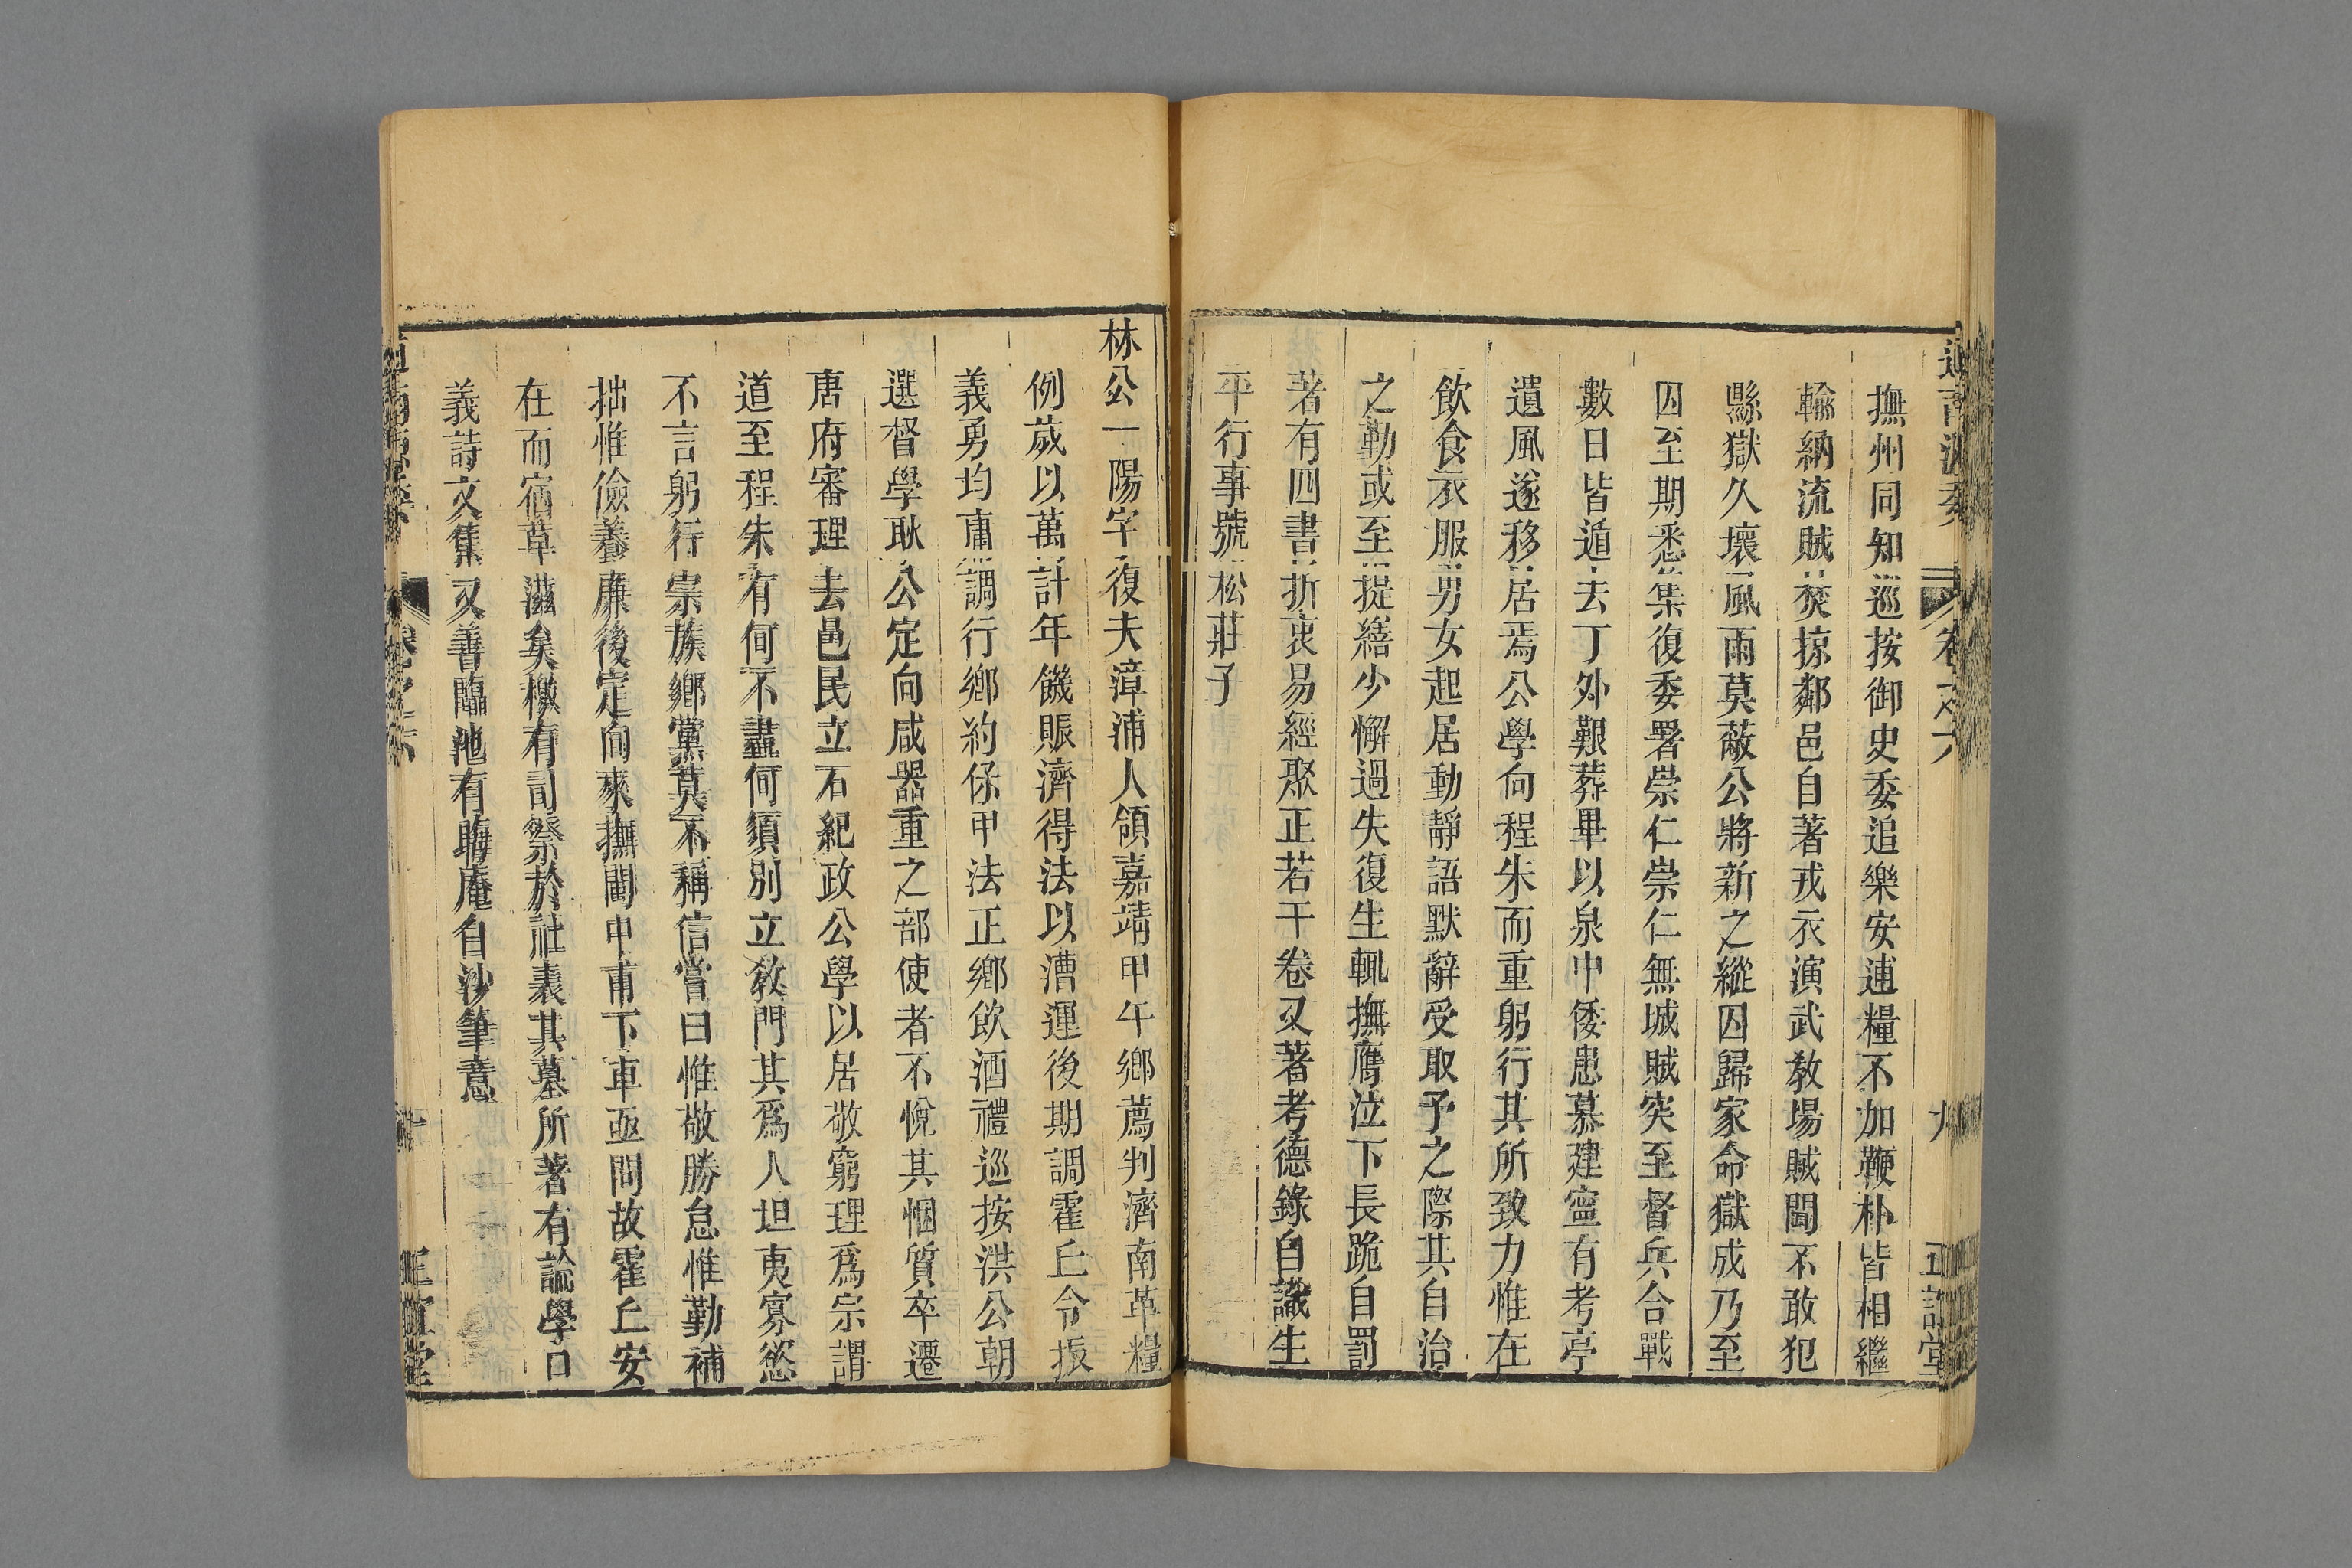 撫州同知巡按御史委追樂安逋糧不加鞭朴皆相繼
輸納流賊焚掠鄰邑自著戎衣演武教場賊聞不敢犯
縣獄久壞風雨莫蔽公將新之縱囚歸家命獄成乃至
囚至期悉集復委署崇仁崇仁無城賊突至督兵合戰
數日皆遁去丁外艱葬畢以泉中倭患慕建寧有考亭
遺風遂移居焉公學向程朱而重躬行其所致力惟在
飲食衣服男女起居動靜語默辭受取予之際其自治
之勤或至提繕少懈過失復生輒撫膺泣下長跪自罰
著有四書折衷易經聚正若干卷又著考德錄自識生
平行事號松莊子
林公一陽字復夫漳浦人領嘉靖甲午鄉薦判濟南革糧
例歲以萬計年饑賑濟得法以漕運後期調霍丘令振
義勇均庸調行鄉約保甲法正鄉飲酒禮巡按洪公朝
選督學耿公定向咸器重之部使者不悅其悃質卒遷
唐府審理去邑民立石紀政公學以居敬窮理爲宗謂
道至程朱有何不盡何須別立教門其爲人坦夷寡慾
不言躬行宗族鄉黨莫不稱信嘗曰惟敬勝怠惟勤補
拙惟儉養廉後定向來撫閩中甫下車亟問故霍丘安
在而宿草滋矣檄有司祭於社表其墓所著有論學口
義詩文集又善臨池有晦庵白沙筆意
卷之六
九
正誼堂